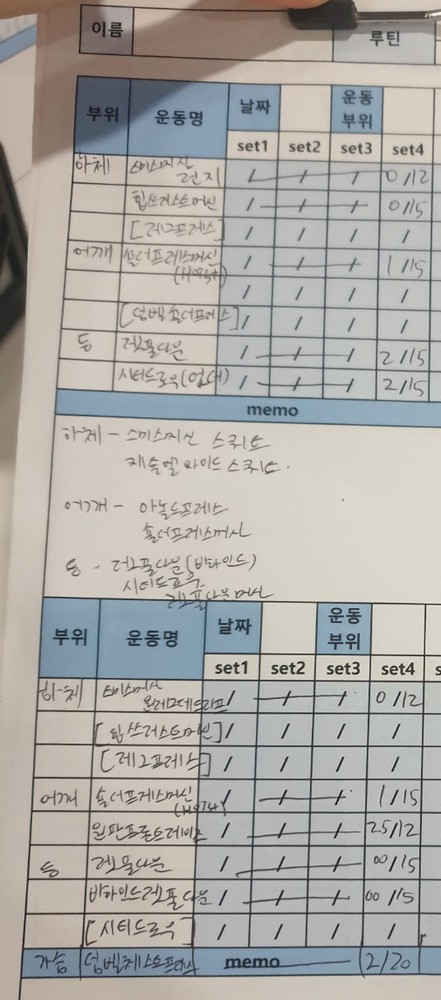 이름 루틴
부위 운동명 날짜 운동 부위
set1 set2 set3 set4
하체 스미스머신 런지 / / / 0/12
힙쓰러스트머신 / / / 0/15
[레그프레스] / / / /
어깨 숄더프레스머신 (HOIST) / / / 1/15
/ / / /
[덤벨숄더프레스] / / / /
등 렛풀다운 / / / 2/15
시티드로우(언더) / / / 2/15
memo
하체 - 스미스머신 스쿼트
케틀벨 와이드 스쿼트.
어깨 - 아놀드프레스
숄더프레스머신
등 - 렛풀다운(비하인드)
시티드로우
렛풀다운머신
부위 운동명 날짜 운동 부위
set1 set2 set3 set4
하체 스미스머신 / / / 0/12
[힙쓰러스트머신] / / / /
[레그프레스] / / / /
어깨 숄더프레스머신 (HOIST) / / / 1/15
원판프론트레이즈 / / / 2.5/12
등 렛풀다운 / / / 00/15
비하인드렛풀다운 / / / 00/15
[시티드로우] / / / /
가슴 덤벨체스트프레스 memo 2/20